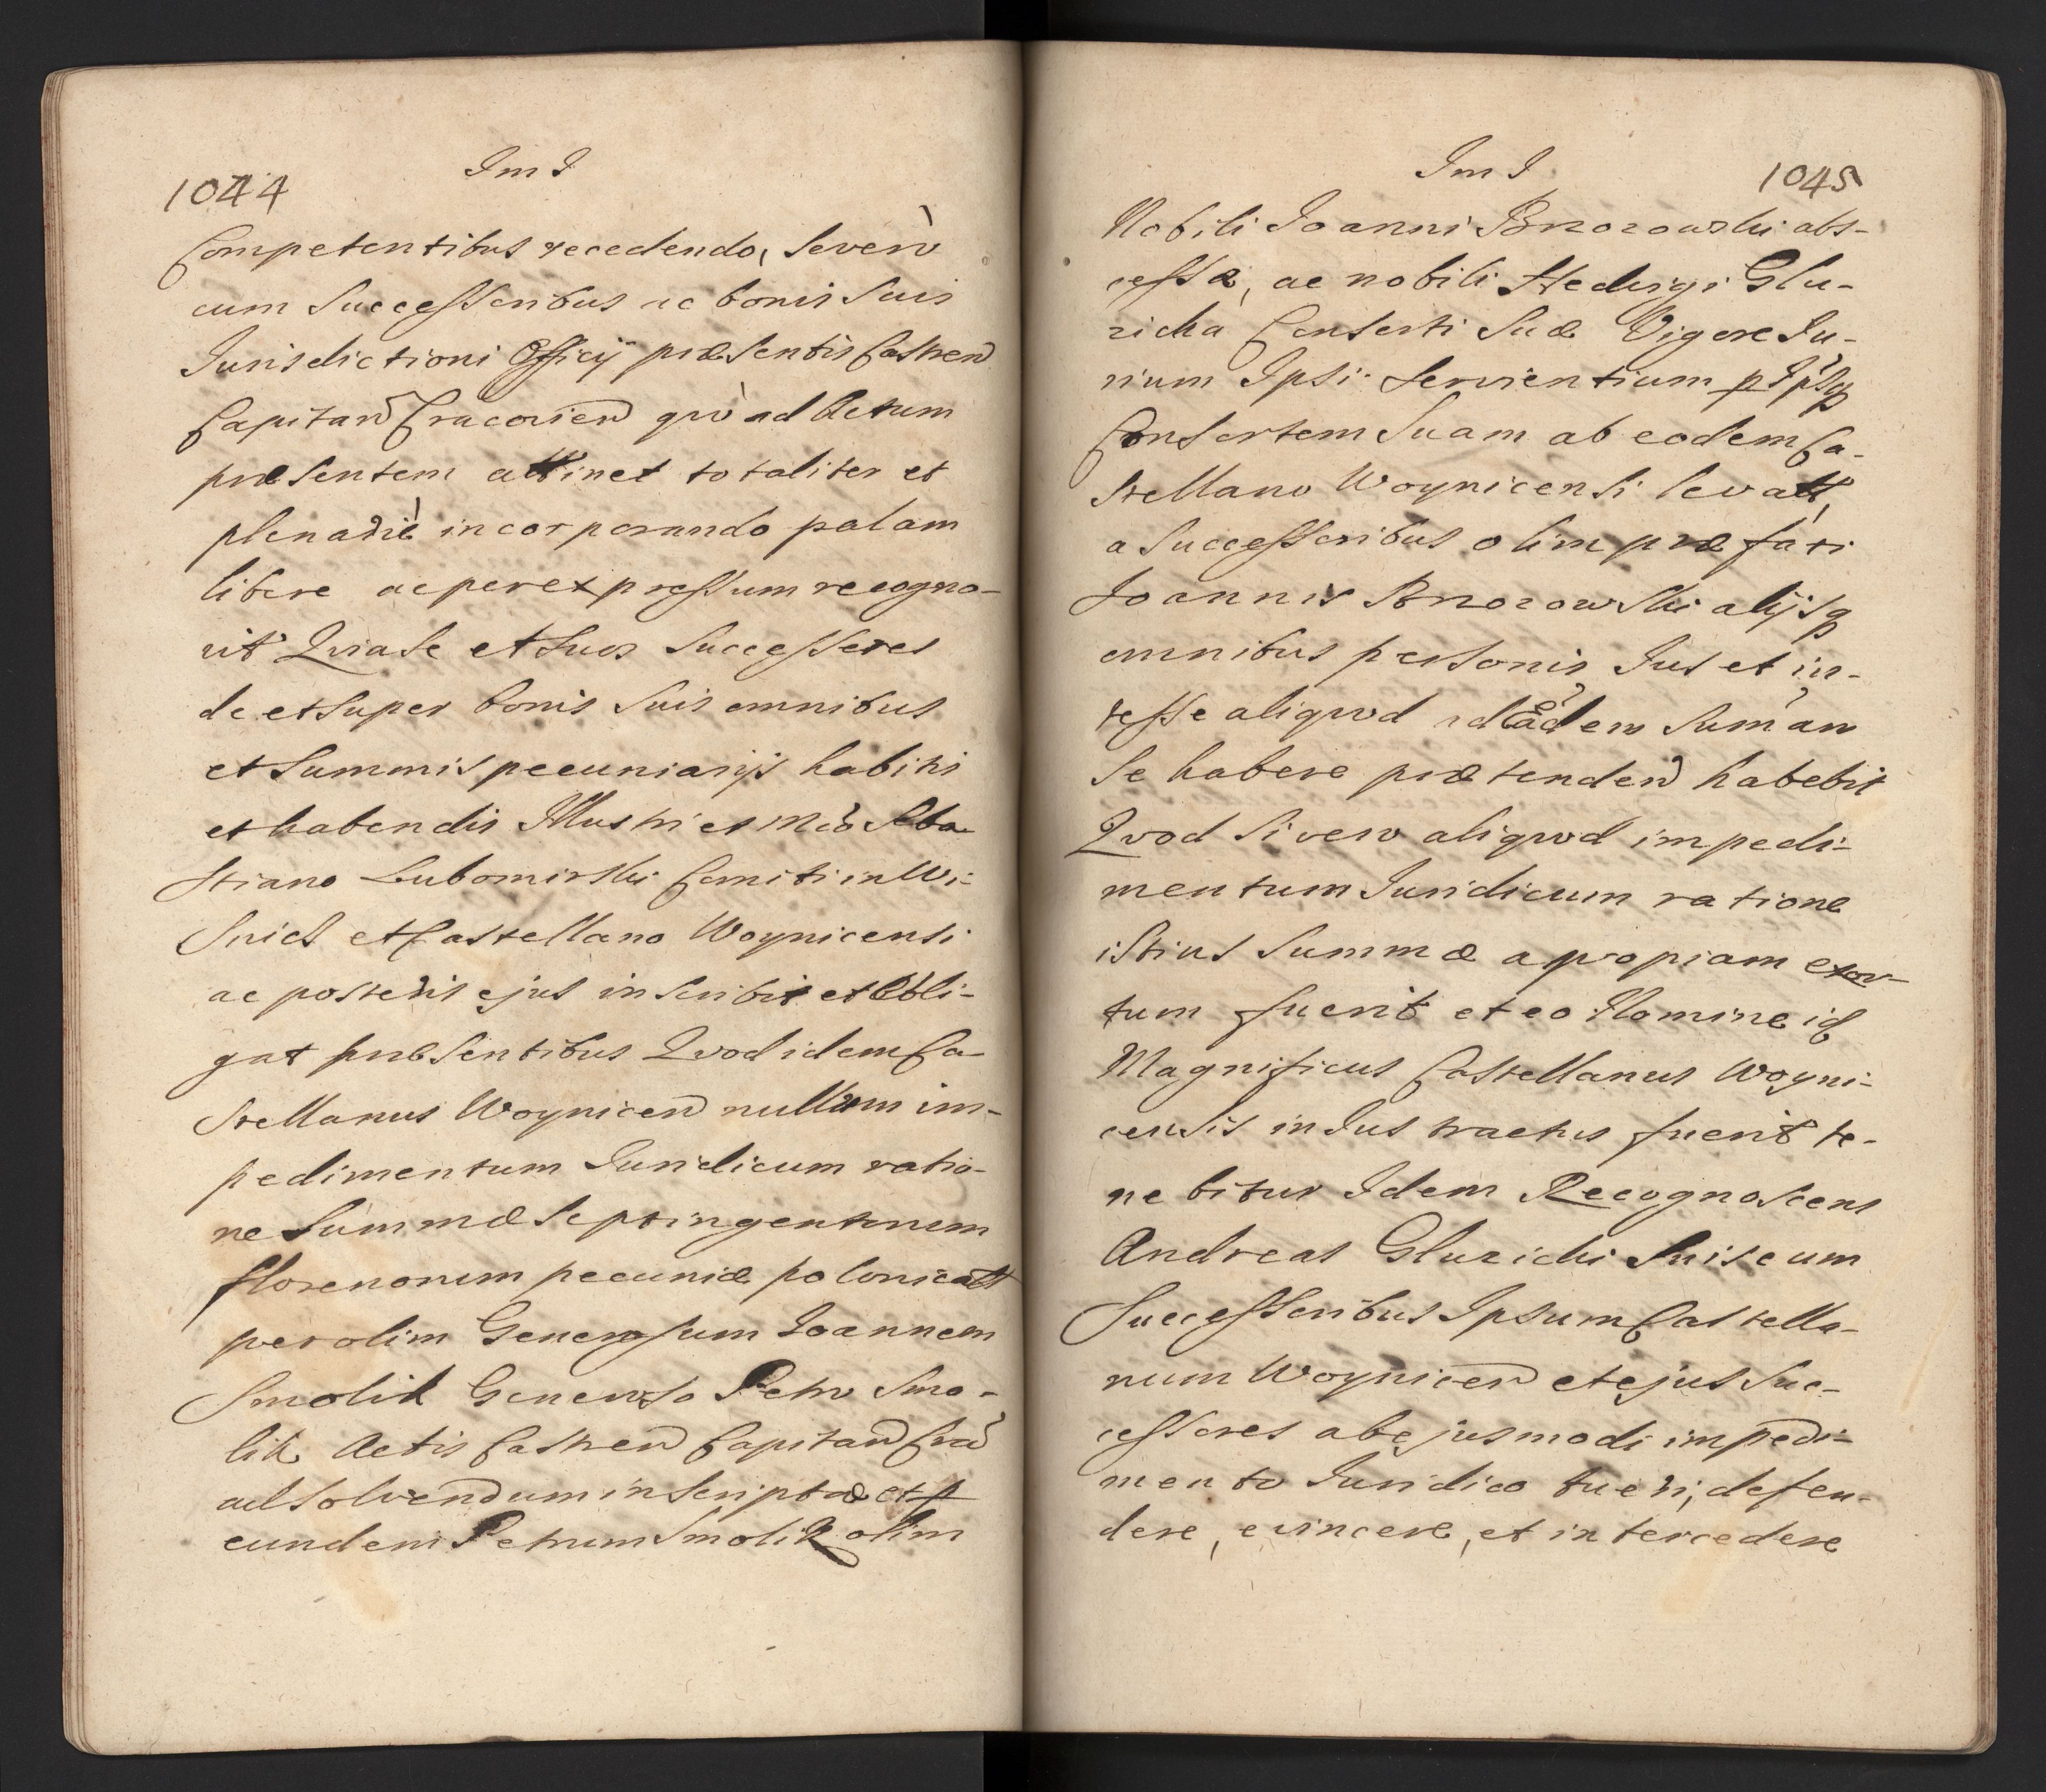 1044
Im I
Competentibus recedendo, Severò
cum Successoribus ac bonis Suis
Jurisdictioni Officij præsentis Castren
Capitan Cracovien qvò ad Actum
præsentem attinet totaliter et
plenariè incorporando palam
libere ac per expressum recogno-
vit Qvia Se et Suos Successores
de et Super bonis Suis omnibus
et Summis pecuniarijs habitis
et habendis Illustri et Mco Seba
Stiano Lubomirski Comiti in Wi-
Snicz et Castellano Woynicensi
ac posteris ejus inscribit et obli-
gat præsentibus Qvod idem Ca-
Stellanus Woynicen nullum im-
pedimentum Juridicum ratio-
ne Summæ Septingentorum
florenorum pecuniæ polonicalis
per olim Generosum Joannem
Smolik Generoso Petro Smo-
lik Actis Castren Capitan Cra
ad solvendum inscriptæ et p
eundem Petrum Smolik olim
Im I
1045
Nobili Joanni Brzozowski abs-
cessæ, ac nobili Hedvigi Glu-
zicka Consorti Suæ Vigore Ju-
rium Ipsi Servientium p Ipsq
Consortem Suam ab eodem Ca-
Stellano Woynicensi levatt,
a Successoribus olim præfati
Joannis Brzozowski alijsq
omnibus personis Jus et in-
tesse aliqvod ad eadem Sumam
Se habere prætenden habebit
Qvod Si vero aliqvod impedi-
mentum Juridicum ratione
istius Summæ apropiam exor-
tum fuerit et eo Nomine id
Magnificus Castellanus Woyni-
censis in Jus tractus fuerit te-
nebitur Idem Recognoscens
Andreas Gluzicki Suis cum
Successoribus Ipsum Castella-
num Woynicen et ejus Suc-
cessores ab ejusmodi impedi-
mento Juridico tueri, defen-
dere, evincere, et intercedere